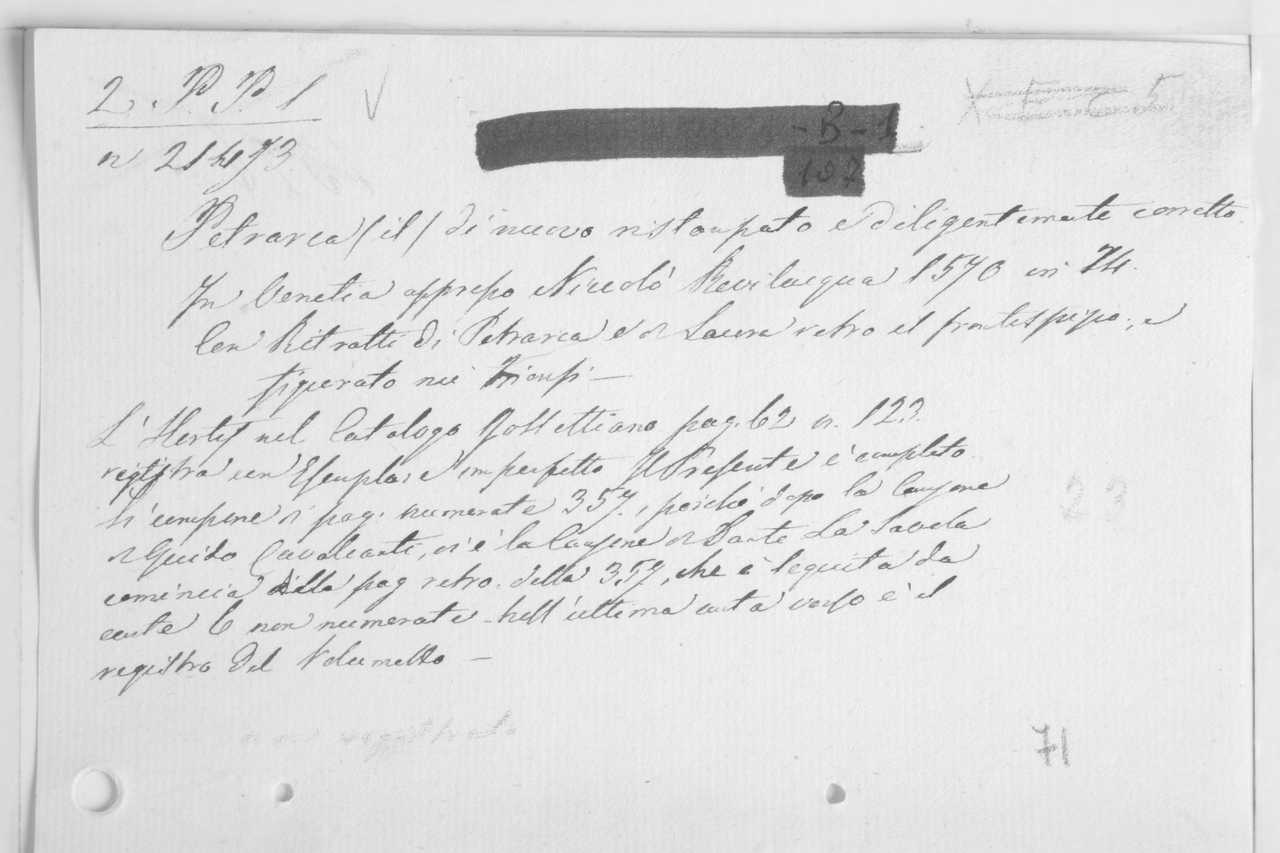 2. P. P. 1
n 21473
- B - 1
5
107
Petrarca (il) di nuovo ristampato e diligentemente corretto.
In Venetia appresso Nicolò Bevilacqua 1570 in 24.
Con Ritratti di Petrarca e di Laura retro il frontespizio; e
figurato nei Trionfi —
L'Hortis nel Catalogo Rossettiano pag. 62 n. 123.
registra un Esemplare imperfetto Il Presente è completo.
Si compone di pag. numerate 357., poichè dopo la Canzone
di Guido Cavalcanti, vi è la Canzone di Dante La Tavola
comincia dalla pag retro della 357, che è seguita da
carte 6 non numerate - nell'ultima carta verso è il
registro del Volumetto —
23
non registrato
71